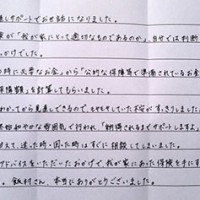 直しサポートでお世話になりました。
が「我が家にとって適切なものであるのか」、自分では判断
っかけでした。
の時に大事なお金」から「公的な保障等で準備されているお金
保障額」を計算してもらいました。
わかってから見直しできるので、もやもやしていた不安がすっきりしました。
和やかな雰囲気で行われ「納得されるまでサポートしますよ」
さえて、迷った時・困った時はすぐに相談してしまいました。
アドバイスをいただいたおかげで、我が家にあった保険と今にす
飯村さん、本当にありがとうございました。